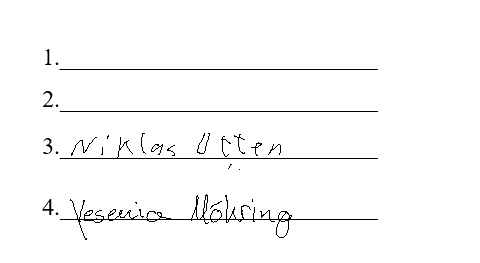 1.
2.
3. Niklas Otten
4. Yesenia Möhring